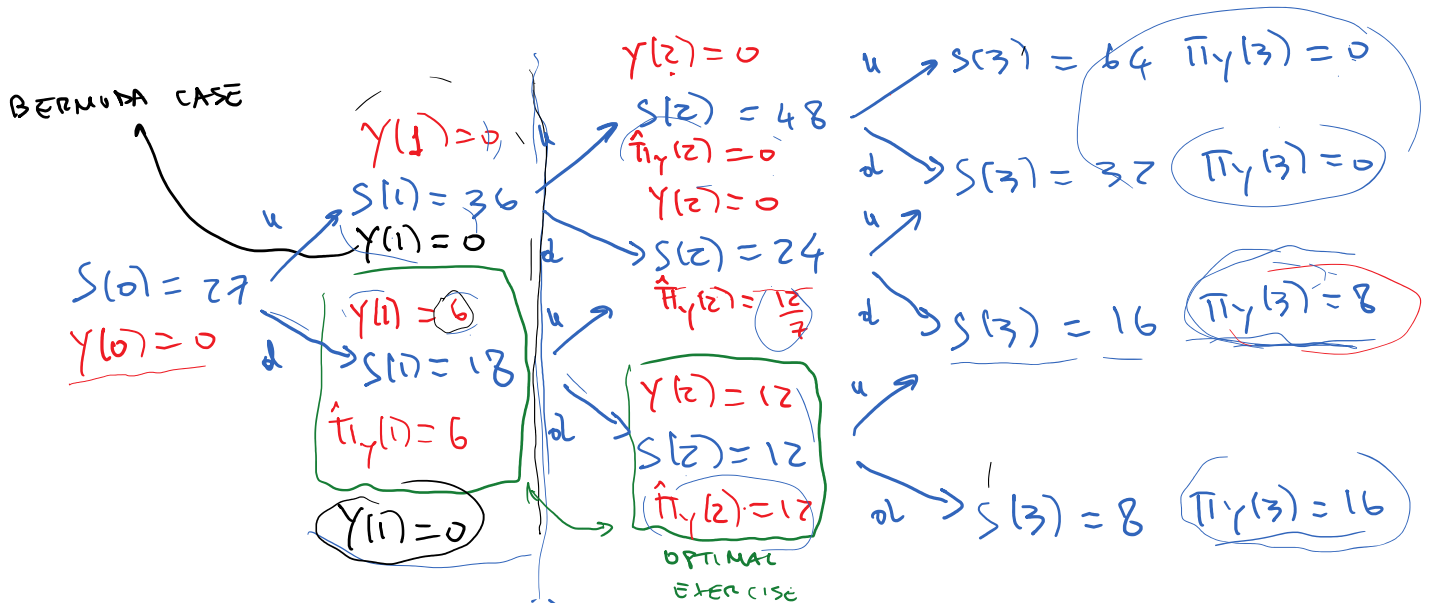 BERMUDA CASE
S(0) = 27
Y(0) = 0
u
d
Y(1) = 0
S(1) = 36
Y(1) = 0
Y(1) = 6
S(1) = 18
π̂_Y(1) = 6
Y(1) = 0
u
d
u
d
Y(2) = 0
S(2) = 48
π̂_Y(2) = 0
Y(2) = 0
S(2) = 24
π̂_Y(2) = 12/7
Y(2) = 12
S(2) = 12
π̂_Y(2) = 12
OPTIMAL
EXERCISE
u
d
u
d
u
d
S(3) = 64 π_Y(3) = 0
S(3) = 32 π_Y(3) = 0
S(3) = 16 π_Y(3) = 8
S(3) = 8 π_Y(3) = 16